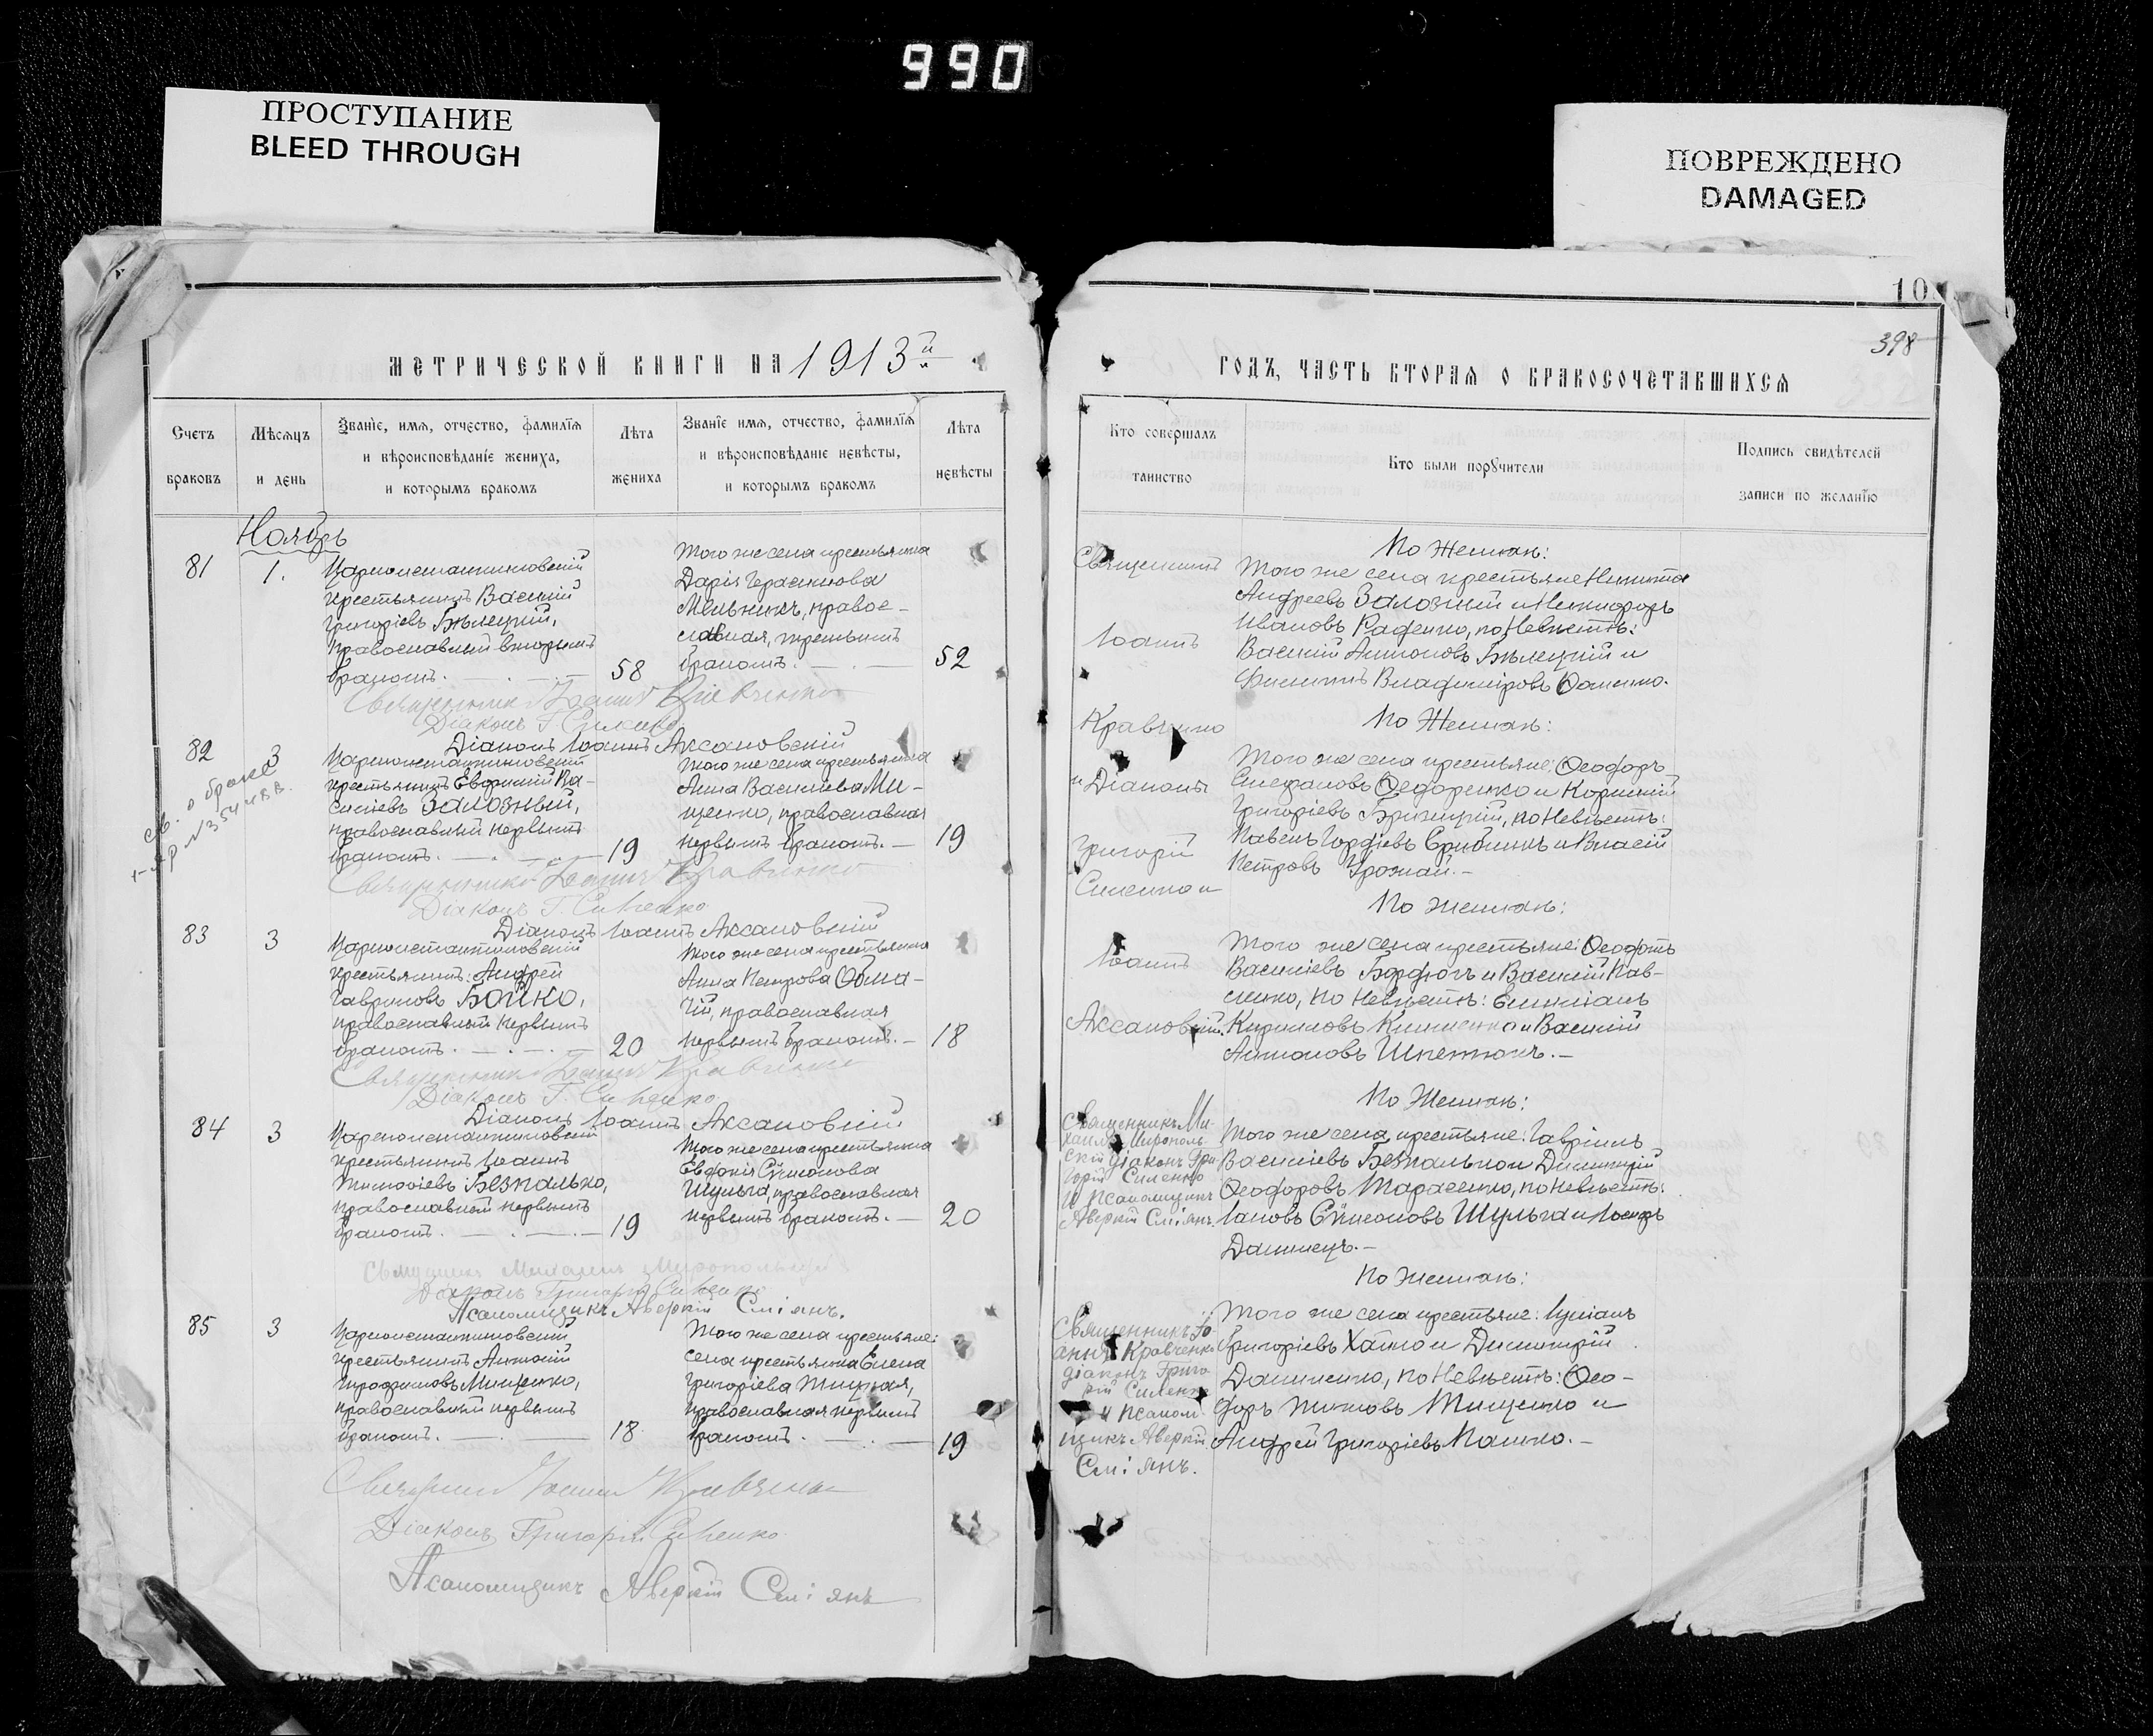 990
ПРОСТУПАНИЕ
BLEED THROUGH
ПОВРЕЖДЕНО
DAMAGED
10
398
МЕТРИЧЕСКОЙ КНИГИ НА 1913й
ГОДЪ, ЧАСТЬ ВТОРАЯ О БРАКОСОЧЕТАВШИХСЯ
Счетъ
браковъ
Мѣсяцъ
и день
Званіе, имя, отчество, фамилія
и вѣроисповѣданіе жениха,
и которымъ бракомъ
Лѣта
жениха
Званіе имя, отчество, фамилія
и вѣроисповѣданіе невѣсты,
и которымъ бракомъ
Лѣта
невѣсты
Кто совершалъ
таинство
Кто были поручители
Подпись свидѣтелей
записи по желанію
Ноябрь
81
1.
Цареконстантиновскій
крестьянинъ Василій
Григоріевъ Бѣлецкій,
православный вторымъ
бракомъ.
58
Того же села крестьянка
Дарія Герасимова
Мельникъ, право-
славная, третьимъ
бракомъ.
52
Священникъ
Іоаннъ
Кравченко
и Діаконы
Григорій
Силенко и
Іоаннъ
Аксановскій.
По Женихѣ:
Того же села крестьяне Никита
Андреевъ Залозный и Никифоръ
Ивановъ Раденко, по Невѣстѣ:
Василій Антоновъ Бѣлецкій и
Филиппъ Владиміровъ Фоменко.
Священникъ Іоаннъ Кравченко
Діаконъ Г. Силенко
Діаконъ Іоаннъ Аксановскій
82
3
св. о браке
Цареконстантиновскій
крестьянинъ Евфимій Ва-
силіевъ Залозный,
православный первымъ
бракомъ.
19
Того же села крестьянка
Анна Василіева Ми-
щенко, православная
первымъ бракомъ.
19
По Женихѣ:
Того же села крестьяне: Ѳеодоръ
Стефановъ Ѳедоренко и Корнилій
Григоріевъ Брилицкій, по Невѣстѣ:
Павелъ Гордіевъ Ерибникъ и Власій
Петровъ Урожай.
Священникъ Іоаннъ Кравченко
Діаконъ Г. Силенко
Діаконъ Іоаннъ Аксановскій
83
3
Цареконстантиновскій
крестьянинъ: Андрей
Гавриловъ Бойко,
православный первымъ
бракомъ.
20
Того же села крестьянка
Анна Петрова Обла-
чій, православная
первымъ бракомъ.
18
По Женихѣ:
Того же села крестьяне: Ѳеодотъ
Василіевъ Бардюгъ и Василій Пав-
ленко, по Невѣстѣ: Емиліанъ
Кирилловъ Клименко и Василій
Антоновъ Шпетюкъ.
Священникъ Іоаннъ Кравченко
Діаконъ Г. Силенко
Діаконъ Іоаннъ Аксановскій
84
3
Цареконстантиновскій
крестьянинъ Іоаннъ
Тимоѳіевъ Безпалько,
православный первымъ
бракомъ.
19
Того же села крестьянка
Евдокія Сѵмеонова
Шульга, православная
первымъ бракомъ.
20
Священникъ Ми-
хаилъ Мирополь-
скій діаконъ Гри-
горій Силенко
и Псаломщикъ
Аверкій Сміянъ.
По Женихѣ:
Того же села крестьяне: Гавріилъ
Василіевъ Безпалько и Димитрій
Ѳеодоровъ Тарасенко, по Невѣстѣ:
Іаковъ Сѵмеоновъ Шульга и Іосифъ
Данилецъ.
Священникъ Михаилъ Миропольскій
Діаконъ Григорій Силенко
Псаломщикъ Аверкій Сміянъ.
85
3
Цареконстантиновскій
крестьянинъ Антоній
Митрофановъ Мищенко,
православный первымъ
бракомъ.
18
Того же села крестьяне:
села крестьянка Елена
Григоріева Тицкая,
православная первымъ
бракомъ.
19
Священникъ Іо-
аннъ Кравченко
діаконъ Григо-
рій Силенко
и Псалом-
щикъ Аверкій
Сміянъ.
По Женихѣ:
Того же села крестьяне: Луліанъ
Григоріевъ Хайло и Димитрій
Даниленко, по Невѣстѣ: Ѳео-
доръ Титовъ Тищенко и
Андрей Григоріевъ Пашко.
Священникъ Іоаннъ Кравченко
Діаконъ Григорій Силенко
Псаломщикъ Аверкій Сміянъ